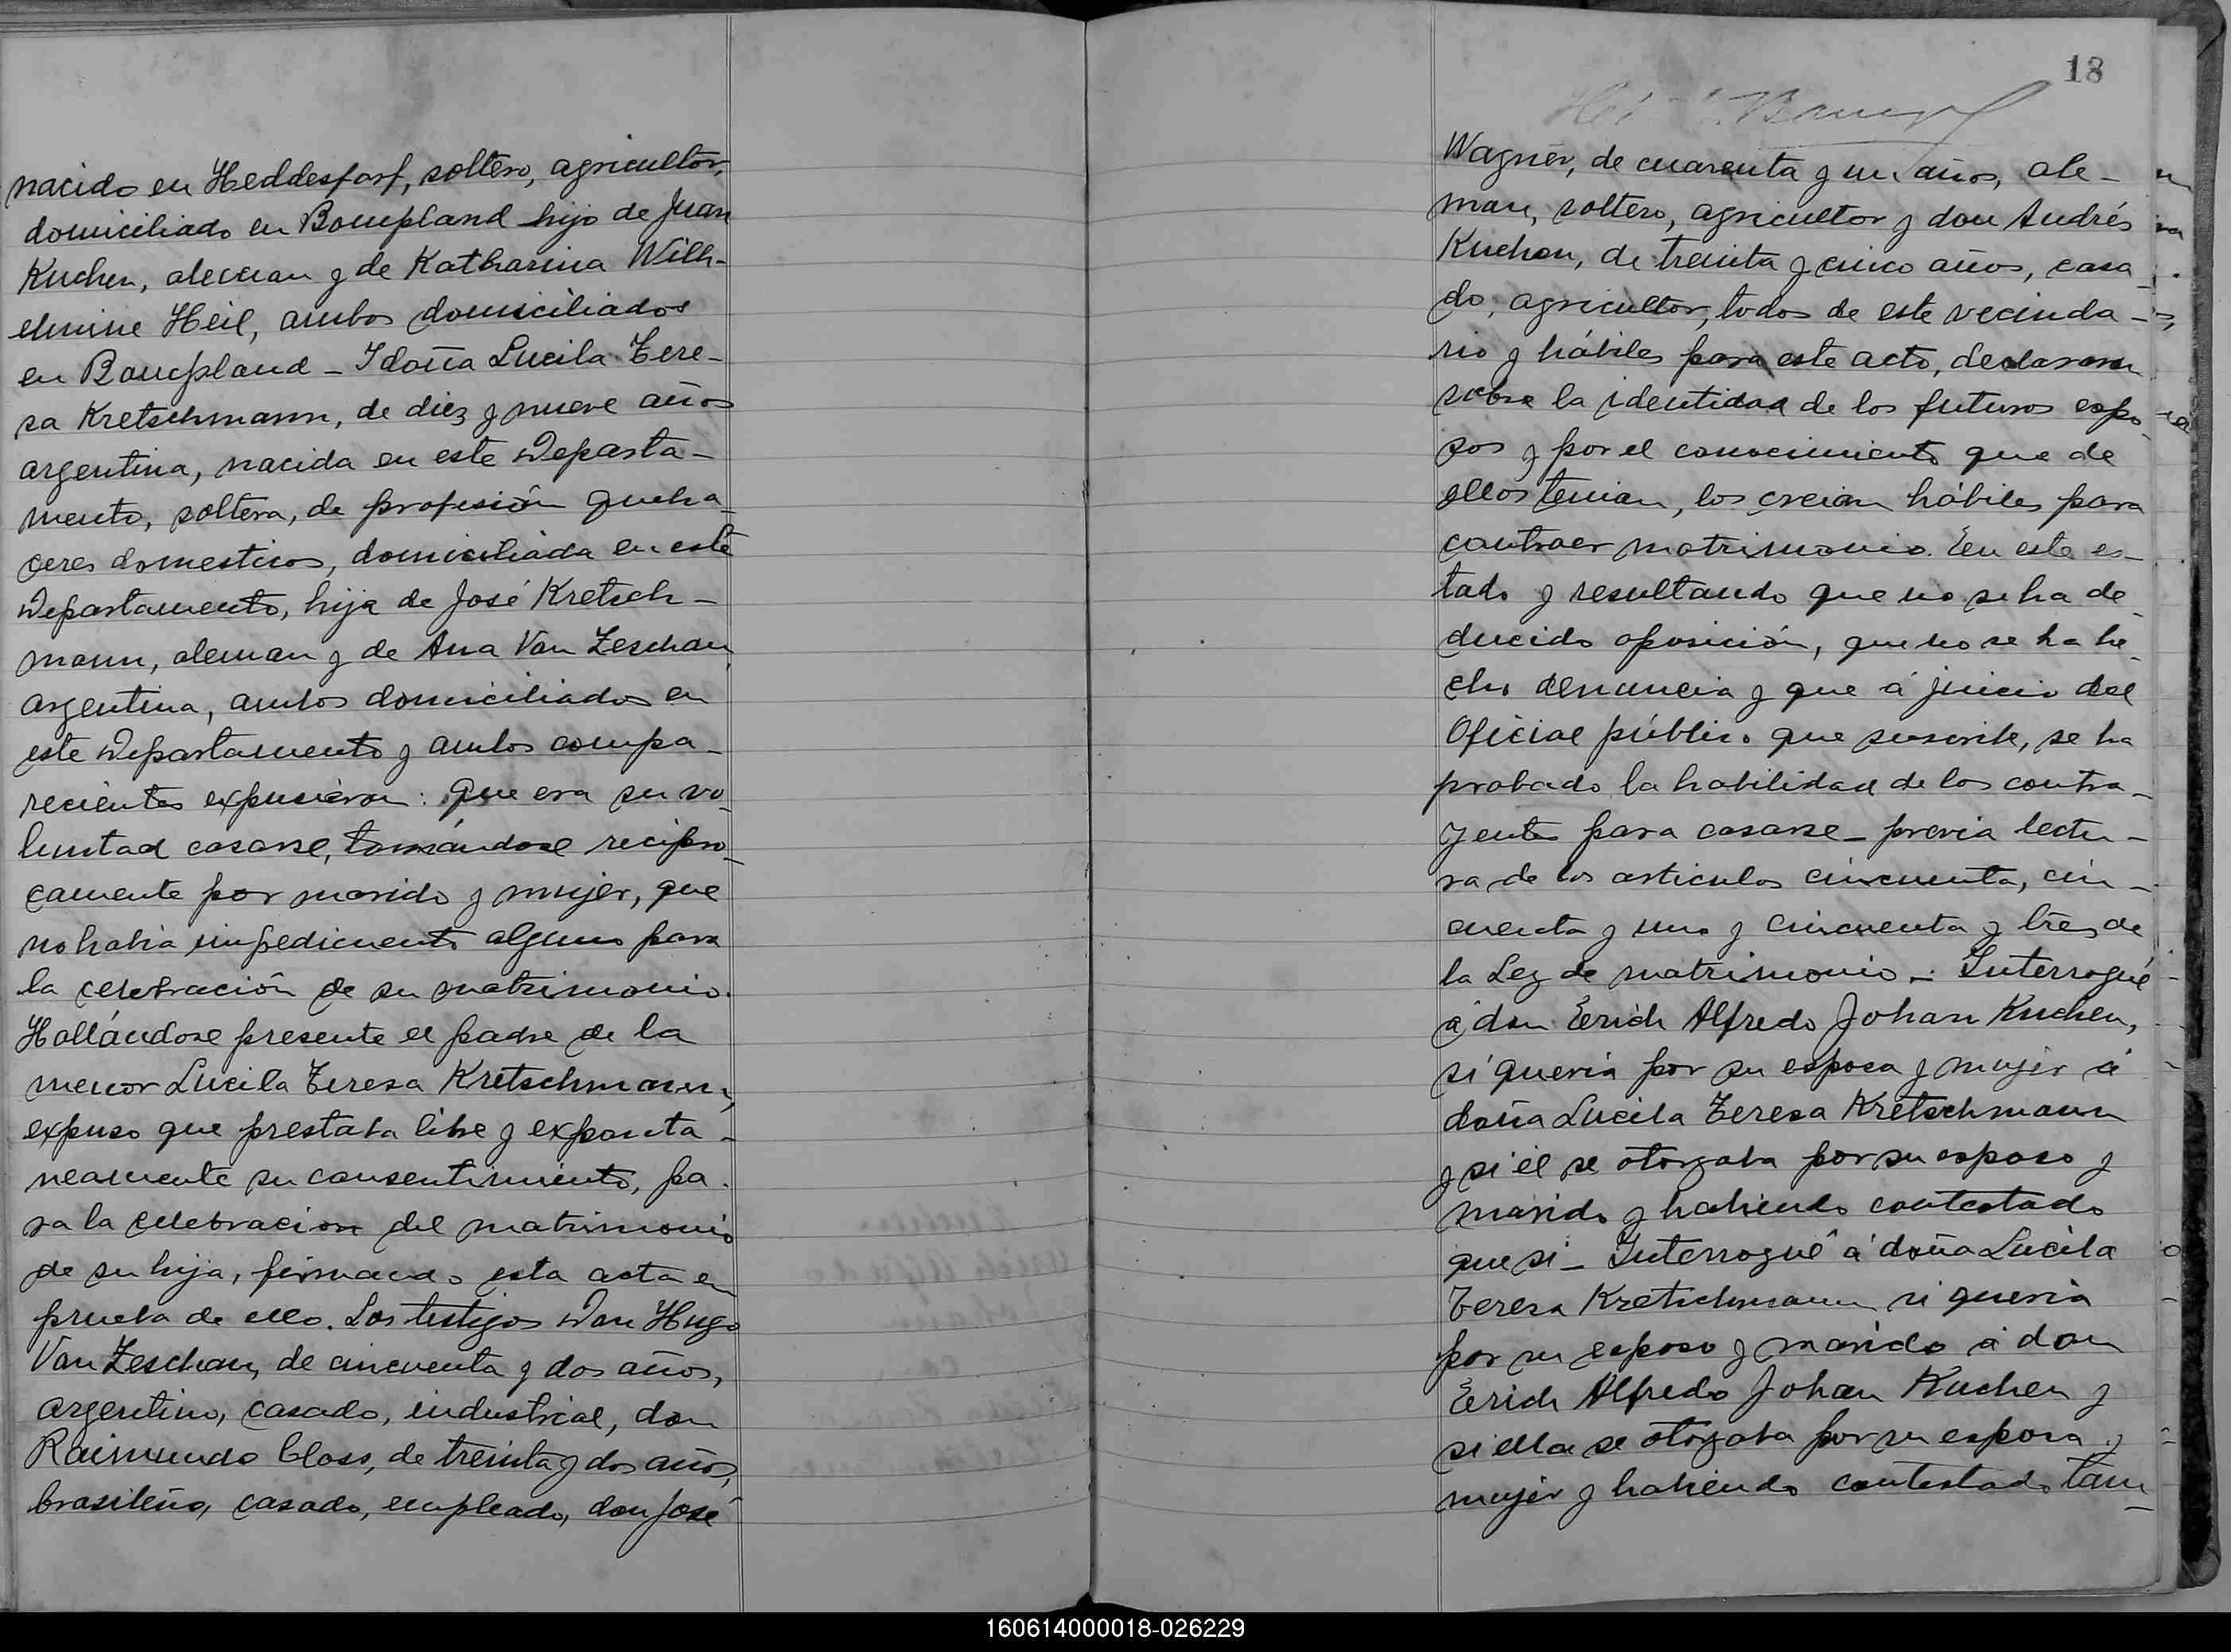 nacido en Heddesforf, soltero, agricultor,
domiciliado en Bompland hijo de Juan
Kuchen, aleman y de Katharina Wilh-
elmine Heil, ambos domiciliados
en Bompland - I doña Lucila Tere-
sa Kretschmann, de diez y nueve años
argentina, nacida en este Departa-
mento, soltera, de profesión queha-
ceres domesticos, domiciliada en este
Departamento, hija de José Kretsch-
mann, aleman y de Ana Van Zeschau
argentina, ambos domiciliados en
este Departamento y ambos compa-
recientes expusieron: que era su vo-
luntad casarse, tomándose recipro-
camente por marido y mujer, que
no habia impedimento alguno para
la celebración de su matrimonio.
Hallándose presente el padre de la
menor Lucila Teresa Kretschmann,
expuso que prestaba libre y exponta-
neamente su consentimiento, pa-
ra la celebracion del matrimonio
de su hija, firmando esta acta en
prueba de ello. Los testigos Don Hugo
Van Zeschau, de cincuenta y dos años,
argentino, casado, industrial, don
Raimundo Closs, de treinta y dos años,
brasileño, casado, empleado, don José
18
Wagner, de cuarenta y un años, ale-
man, soltero, agricultor y don Andrés
Kuchen, de treinta y cinco años, casa-
do, agricultor, todos de este vecinda-
rio y hábiles para este acto, declararon
sobre la identidad de los futuros espo-
sos y por el conocimiento que de
ellos tenian, los creian hábiles para
contraer matrimonio. En este es-
tado y resultando que no se ha de-
ducido oposición, que no se ha he-
cho denuncia y que á juicio del
Oficial público que suscribe, se ha
probado la habilidad de los contra-
yentes para casarse - previa lectu-
ra de los articulos cincuenta, cin-
cuenta y uno y cincuenta y tres de
la Ley de matrimonio -. Interrogué
á don Erich Alfredo Johan Kuchen,
si queria por su esposa y mujer á
doña Lucila Teresa Kretschmann
y si él se otorgaba por su esposo y
marido y habiendo contestado
que si - Interrogué á doña Lucila
Teresa Kretschmann si queria
por su esposo y marido á don
Erich Alfredo Johan Kuchen y
si ella se otorgaba por su esposa y
mujer y habiendo contestado tam-
160614000018-026229